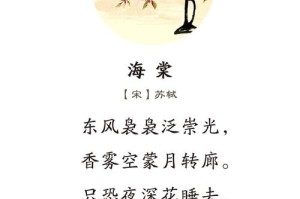 海棠
【宋】苏轼
东风袅袅泛崇光，
香雾空蒙月转廊。
只恐夜深花睡去，